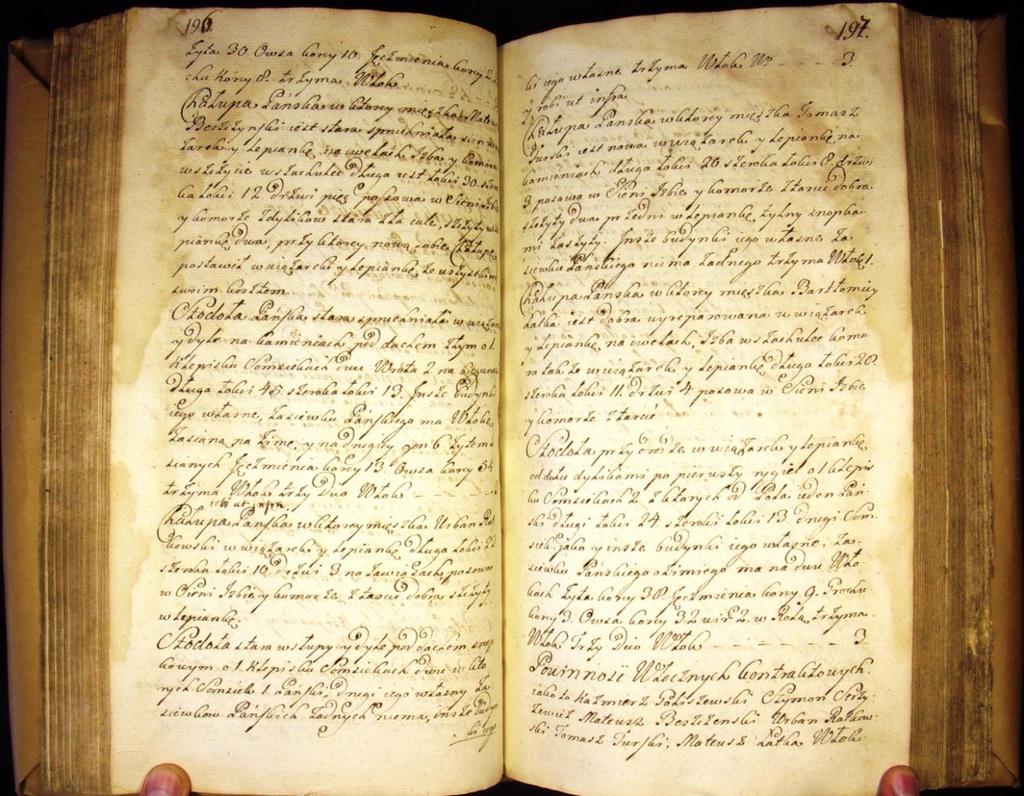 196.
żyta 30. Owsa korcy 10. Jęczmienia korcy 2.
chu korcy 8. trzyma Włok
Chałupa Pańska w ktorey mięszka Mateusz
Beszżynski iest stara spruchniała sien w wią
zarek y lepiankę, na cwelach, Izba y komora
w szczycie w stachulec długa iest łokci 30. szero
ka łokci 12. drzwi pięć posowa w Sieni Izbie
y komorze stara zła cale, szczyty w le
piankę dwa, przy ktorey nową sobie Chałupę
postawił w wiązarek y lepiankę, ze wszystkim
swoim kosztem.
Stodoła Pańska stara spruchniała w wiązar
y dyle na kamieniach pod dachem złym o 1.
klepisku Somsiekach dwu Wrota 2 na biegunach
długa łokci 45 szeroka łokci 13. Insze budynki
iego własne, zasiewku Pańskiego ma Włokę
zasianą na zimę, y na drugiey gon 6 żytem za
sianych Jęczmienia korcy 13. Owsa korcy 54
trzyma Włok trzy Duo Włok
robi ut infra.
Chałupa Pańska w ktorey mięszka Urban Rat
kowski w wiązarek y lepiankę długa łokci 22
szeroka łokci 10. drzwi 3. na zawiasach, posowa
w Sieni Izbie y komorze, z tarcic dobra, szczyty
w lepiankę.
Stodoła stara w słupy y dyle pod dachem snop
kowym o 1. klepisku Somsiekach dwu w kto
rych Somsiek 1. Pański, drugi iego własny Za
siewkow Pańskich żadnych niema, insze budyn
ki iego
197.
ki iego własne trzyma Włok Nro 3.
y robi ut infra.
Chałupa Pańska w ktorey mięszka Tomasz
Turski iest nowa w wiązarek y lepiankę na
kamieniach długa łokci 20 szeroka łokci 8. drzwi
3. posowa w Sieni Izbie y komorze z tarcic dobra
szczyty dwa przedni w lepiankę, tylny snopka
mi zaszyty. Insze budynki iego własne, Za
siewku Pańskiego niema żadnego trzyma Włokę 1.
Chałupa Pańska w ktorey mięszka Bartłomiey
Łatka iest dobra wyreparowana w wiązarek
y lepiankę, na cwelach, Izba w stachulec komo
ra także w wiązarek y lepiankę długa łokci 20.
szeroka łokci 11. drzwi 4. posowa w Sieni Izbie
y komorze z tarcic
Stodoła przy drodze w wiązarek y lepiankę
od dołu dylikami po pierwszy rygiel o 1 klepis
ku Somsiekach 2. z ktorych od Pola ieden Pań
ski długi łokci 24 szeroki łokci 13 drugi Som
siek, jako y insze budynki iego własne. Za
siewku Pańskiego ozimiego ma na dwu Wło
kach żyta korcy 38. Jęczmienia korcy 9. Grochu
korcy 3. Owsa korcy 32 wier 2. w Rolą trzyma
Włok Trzy Duo Włok 3.
Powinność Włocznych kontraktowych
iako to Kazmierz Szymon
Mateusz Beszżenski Urban Ratkow
ski Tomasz Turski, Mateusz Łatka Włok